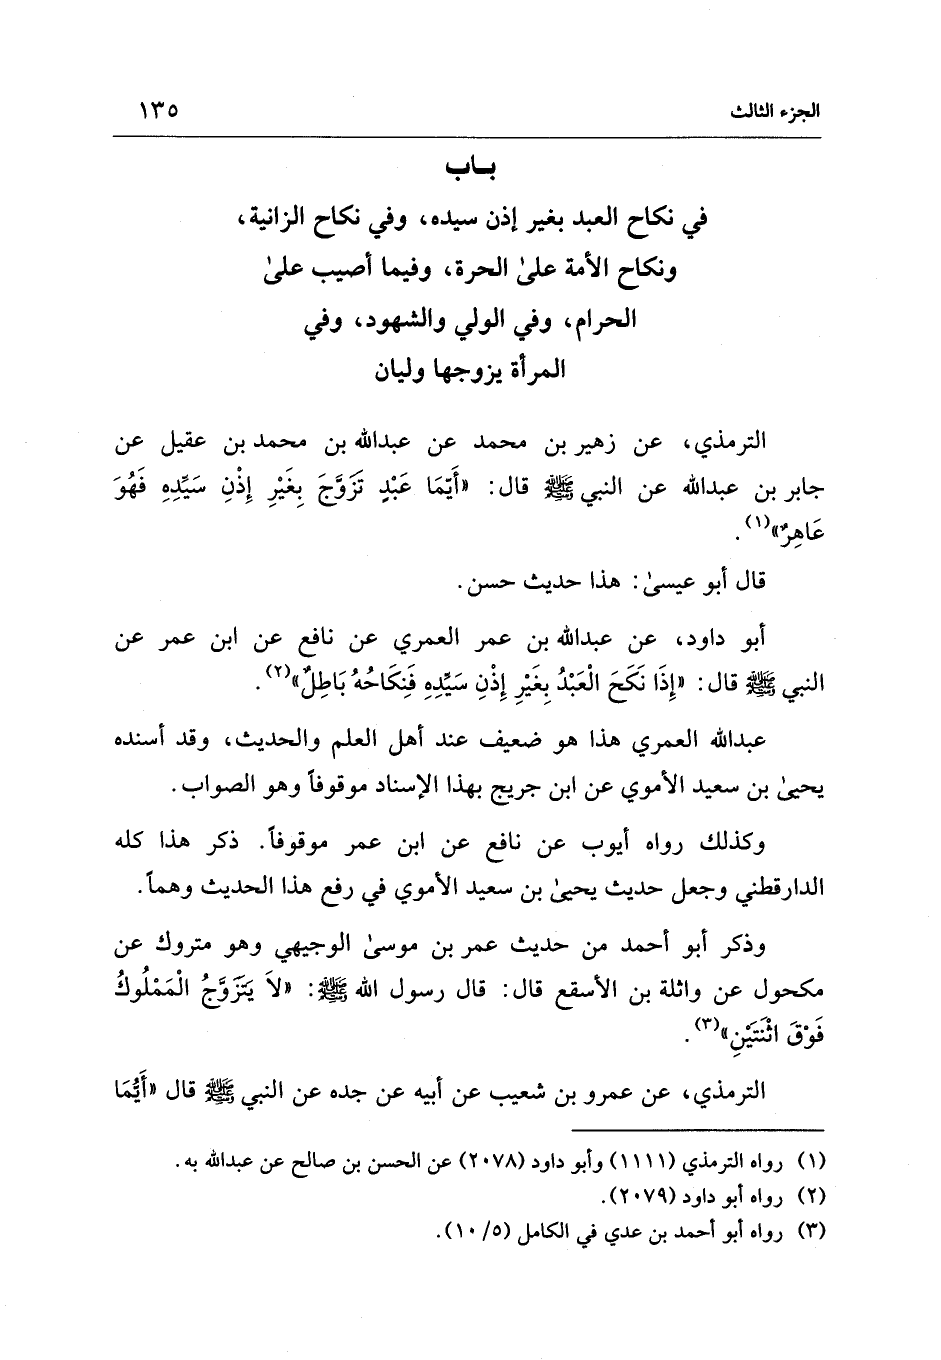 الجزء الثالث ١٣٥
بـاب
في نكاح العبد بغير إذن سيده، وفي نكاح الزانية،
ونكاح الأمة علىٰ الحرة، وفيما أصيب علىٰ
الحرام، وفي الولي والشهود، وفي
المرأة يزوجها وليان
الترمذي، عن زهير بن محمد عن عبدالله بن محمد بن عقيل عن
جابر بن عبدالله عن النبي ﷺ قال: «أَيُّمَا عَبْدٍ تَزَوَّجَ بِغَيْرِ إِذْنِ سَيِّدِهِ فَهُوَ
عَاهِرٌ»(١).
قال أبو عيسىٰ: هذا حديث حسن.
أبو داود، عن عبدالله بن عمر العمري عن نافع عن ابن عمر عن
النبي ﷺ قال: «إِذَا نَكَحَ الْعَبْدُ بِغَيْرِ إِذْنِ سَيِّدِهِ فَنِكَاحُهُ بَاطِلٌ»(٢).
عبدالله العمري هذا هو ضعيف عند أهل العلم والحديث، وقد أسنده
يحيىٰ بن سعيد الأموي عن ابن جريج بهذا الإسناد موقوفاً وهو الصواب.
وكذلك رواه أيوب عن نافع عن ابن عمر موقوفاً. ذكر هذا كله
الدارقطني وجعل حديث يحيىٰ بن سعيد الأموي في رفع هذا الحديث وهماً.
وذكر أبو أحمد من حديث عمر بن موسىٰ الوجيهي وهو متروك عن
مكحول عن واثلة بن الأسقع قال: قال رسول الله ﷺ: «لاَ يَتَزَوَّجُ الْمَمْلُوكُ
فَوْقَ اثْنَتَيْنِ»(٣).
الترمذي، عن عمرو بن شعيب عن أبيه عن جده عن النبي ﷺ قال «أَيُّمَا
(١) رواه الترمذي (١١١١) وأبو داود (٢٠٧٨) عن الحسن بن صالح عن عبدالله به.
(٢) رواه أبو داود (٢٠٧٩).
(٣) رواه أبو أحمد بن عدي في الكامل (٥/ ١٠).